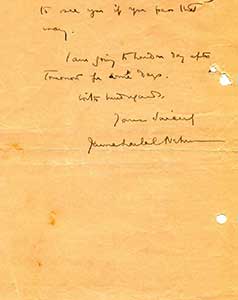 to see you if you pass that
way.
I am going to London day after
tomorrow for some days.
With kind regards,
Yours sincerely
Jawaharlal Nehru